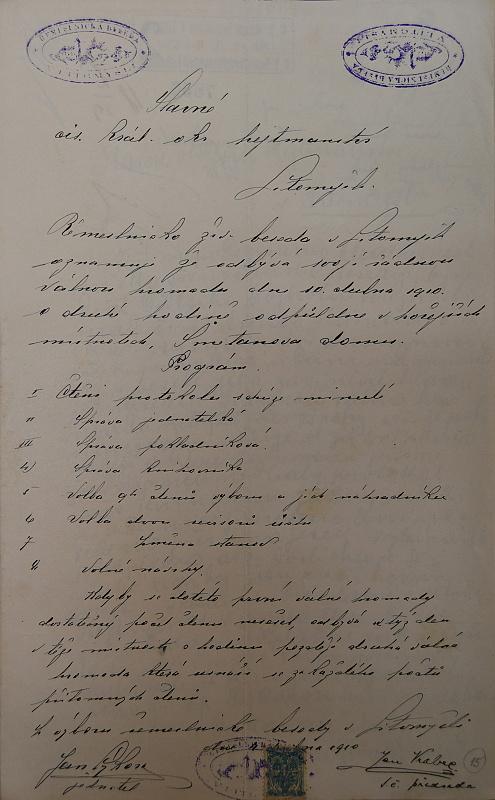 ŘEMESLNICKÁ BESEDA
LITOMYŠL
ŘEMESLNICKÁ BESEDA
Slavné
cís. král. okr. hejtmanství
Litomyšl.
Řemeslnicko živ. beseda v Litomyšli
oznamuje že odbývá svojí řádnou
válnou hromadu dne 10. dubna 1910.
o druhé hodině odpoledne v hořejších
místnotech, Smetanova domu.
Prográm.
I Čtení protokolu schůze minulé
II Správa jednatelská
III Správa pokladníková.
4) Správa knihovníka
5 Volba 9ti členů výboru a jich náhradníků
6 Volba dvou revisorů účtu
7 Změna stanov
8 Volné návrhy.
Kdyby se dotéto první válné hromady
dostatečný počet členů nesešel, odbývá se týž den
v téže místnosti o hodinu pozdéjí druhá válná
hromada která usnáší se za každého počtu
přítomných členů.
Z výboru řemeslnické besedy v Litomyšli
dubna 1910
Jan
jednatel
Jan
t. č. předseda
15